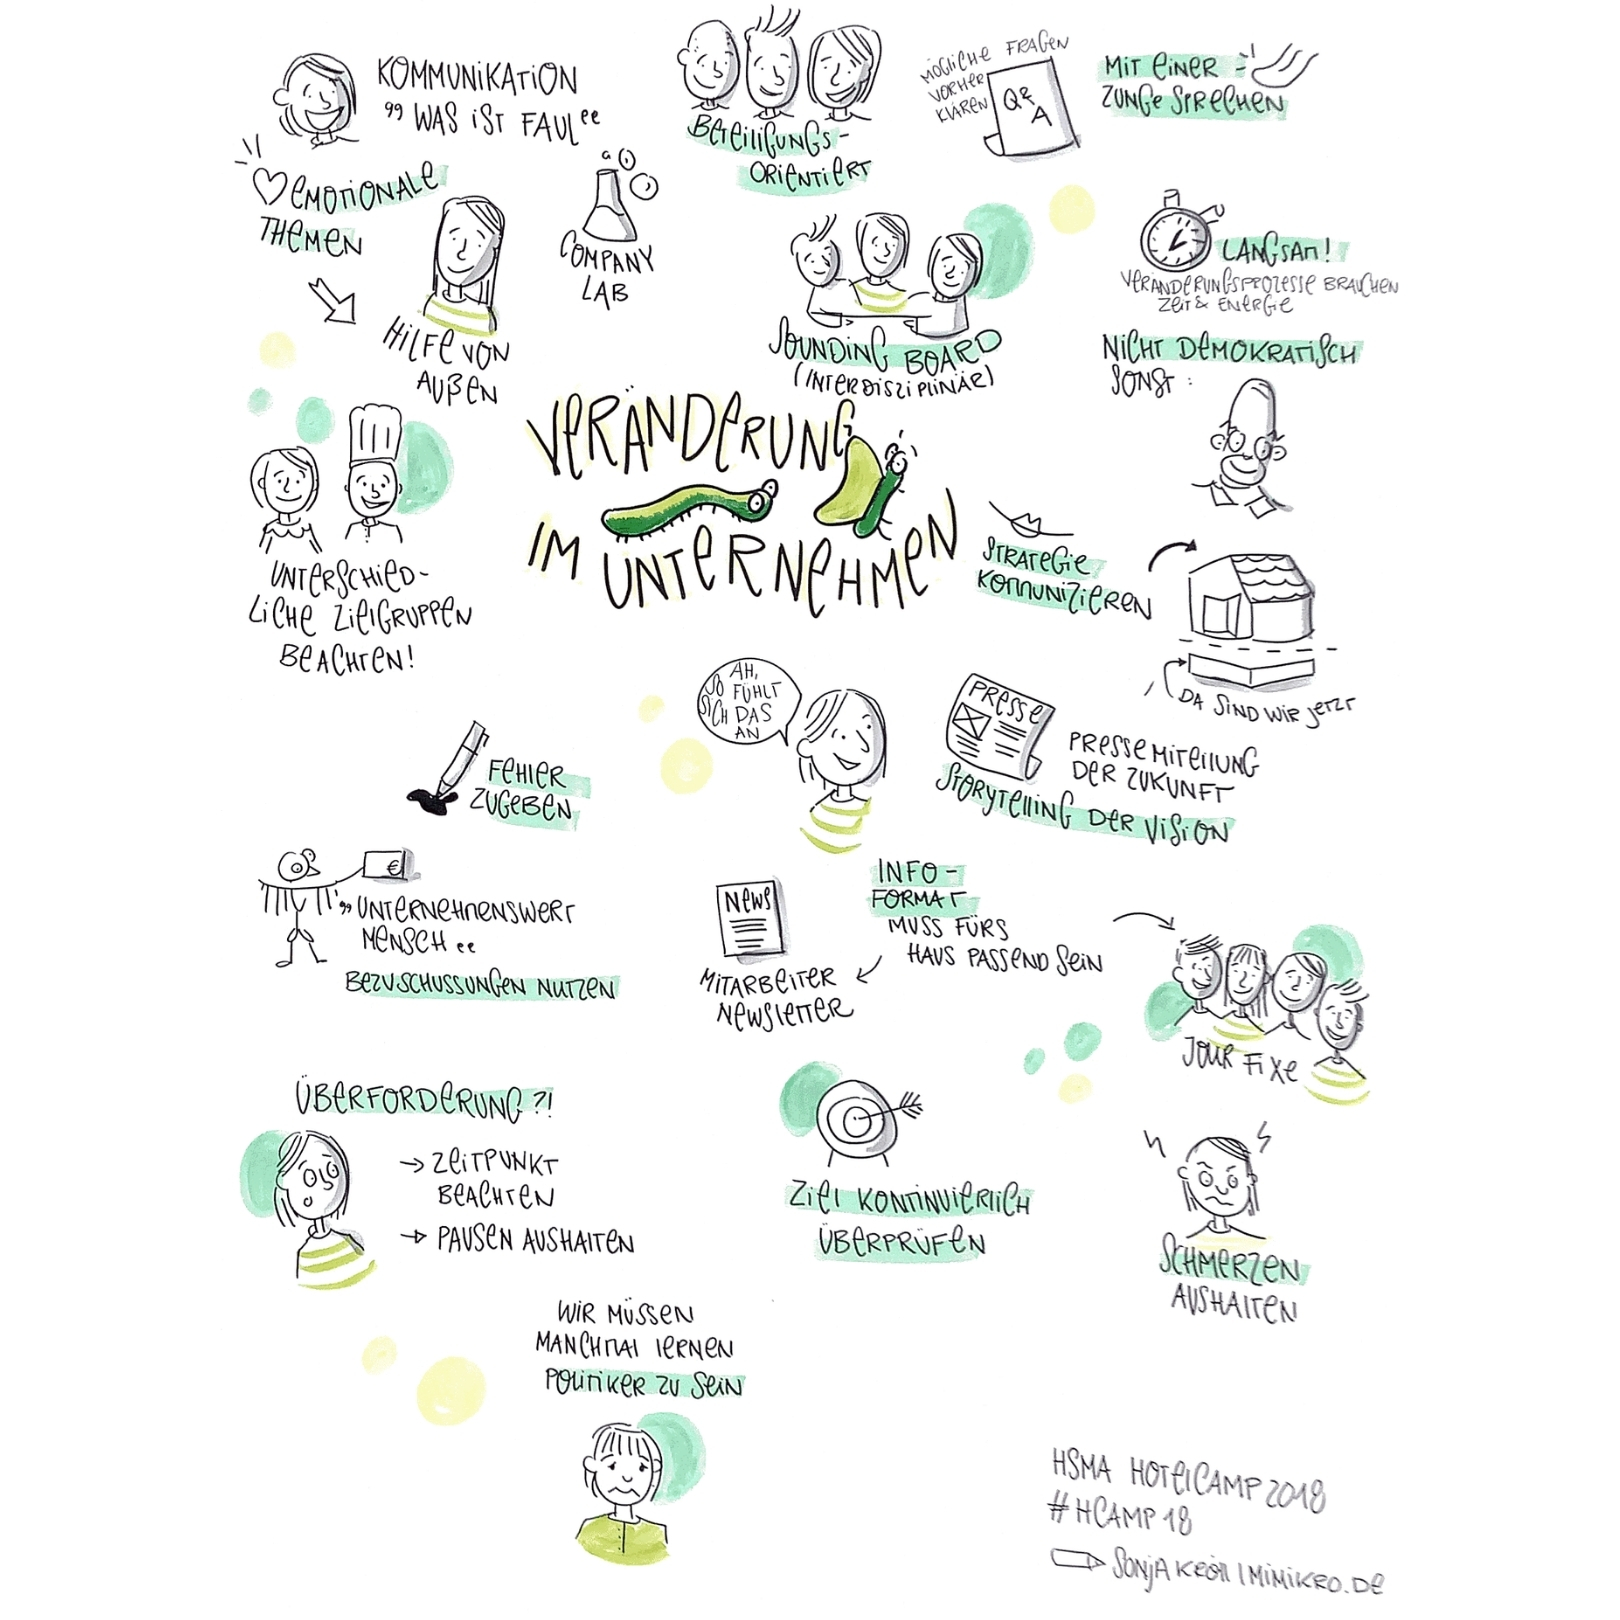 KOMMUNIKATION
„WAS IST FAUL“
EMOTIONALE
THEMEN
HILFE VON
AUßEN
COMPANY
LAB
BETEILIGUNGS-
ORIENTIERT
MÖGLICHE FRAGEN
VORHER
KLÄREN
Q&
A
MIT EINER
ZUNGE SPRECHEN
SOUNDING BOARD
(INTERDISZIPLINÄR)
LANGSAM!
VERÄNDERUNGSPROZESSE BRAUCHEN
ZEIT & ENERGIE
NICHT DEMOKRATISCH
SONST:
VERÄNDERUNG
IM UNTERNEHMEN
UNTERSCHIED-
LICHE ZIELGRUPPEN
BEACHTEN!
STRATEGIE
KOMMUNIZIEREN
DA SIND WIR JETZT
AH,
SO FÜHLT
SICH DAS
AN
PRESSE
PRESSEMITEILUNG
DER ZUKUNFT
STORYTELLING DER VISION
FEHLER
ZUGEBEN
€
„UNTERNEHMENSWERT
MENSCH“
BEZUSCHUSSUNGEN NUTZEN
INFO-
FORMAT
MUSS FÜRS
HAUS PASSEND SEIN
NEWS
MITARBEITER
NEWSLETTER
JOUR FIXE
ÜBERFORDERUNG?!
→ ZEITPUNKT
BEACHTEN
→ PAUSEN AUSHALTEN
ZIEL KONTINUIERLICH
ÜBERPRÜFEN
SCHMERZEN
AUSHALTEN
WIR MÜSSEN
MANCHMAL LERNEN
POLITIKER ZU SEIN
HSMA HOTELCAMP 2018
#HCAMP18
SONJA KRÖLL | MIMIKRO.DE